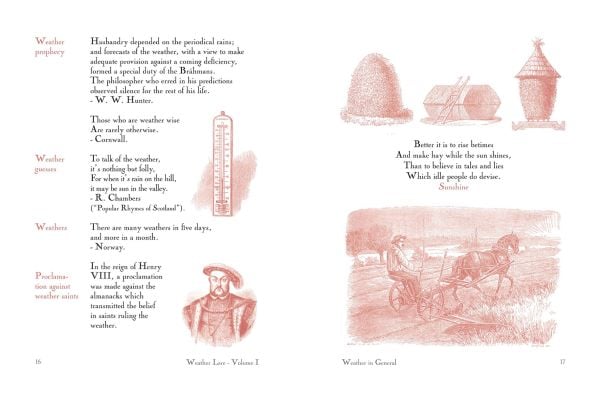 Weather prophecy
Husbandry depended on the periodical rains;
and forecasts of the weather, with a view to make
adequate provision against a coming deficiency,
formed a special duty of the Brāhmans.
The philosopher who erred in his predictions
observed silence for the rest of his life.
- W. W. Hunter.
Those who are weather wise
Are rarely otherwise.
- Cornwall.
Weather guesses
To talk of the weather,
it's nothing but folly,
For when it's rain on the hill,
it may be sun in the valley.
- R. Chambers
("Popular Rhymes of Scotland").
Weathers
There are many weathers in five days,
and more in a month.
- Norway.
Proclama-
tion against
weather saints
In the reign of Henry
VIII, a proclamation
was made against the
almanacks which
transmitted the belief
in saints ruling the
weather.
16
Weather Lore - Volume I
Better it is to rise betimes
And make hay while the sun shines,
Than to believe in tales and lies
Which idle people do devise.
Sunshine
Weather in General
17